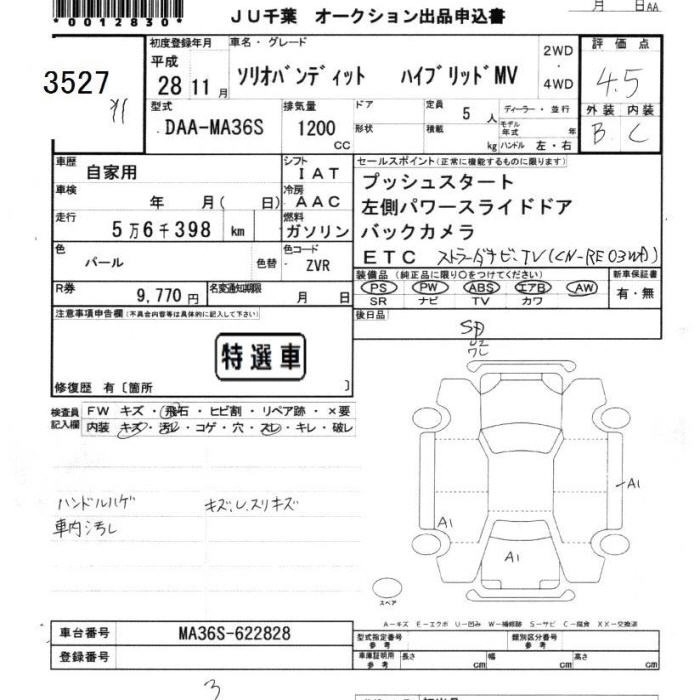 月 日AA
*0012830*
JU千葉 オークション出品申込書
3527
初度登録年月
平成
28 11月
車名・グレード
ソリオバンディット ハイブリッドMV
2WD
・
4WD
評価点
4.5
外装 内装
B C
型式
DAA-MA36S
排気量
1200
CC
ドア
形状
定員
5人
積載
kg
ディーラー・並行
モデル年式 年
ハンドル 左・右
車歴
自家用
シフト
IAT
車検
年 月( 日)
冷房
AAC
走行
5万6千398 km
燃料
ガソリン
色
パール
色替
色コード
ZVR
R券
9,770円
名変通知期限
月 日
セールスポイント(正常に機能するものに限ります)
プッシュスタート
左側パワースライドドア
バックカメラ
ETC ストラーダナビ・TV(CN-RE03WD)
装備品 (純正品に限り○をつけてください)
PS PW ABS エアB AW
SR ナビ TV カワ
新車保証書
有・無
後日品
注意事項申告欄(不具合内容等は具体的に記入して下さい)
特選車
修復歴 有〔箇所 〕
検査員記入欄
FW キズ・飛石・ヒビ割・リペア跡・×要
内装 キズ・汚レ・コゲ・穴・スレ・キレ・破レ
ハンドルハゲ
車内汚レ
キズ、U、スリキズ
A1
A1
A1
スペア
A-キズ E-エクボ U-凹み W-補修跡 S-サビ C-腐食 XX-交換済
車台番号
MA36S-622828
登録番号
型式指定番号 参考
類別区分番号 参考
車庫証明用 参考
長さ cm
幅 cm
高さ cm
3